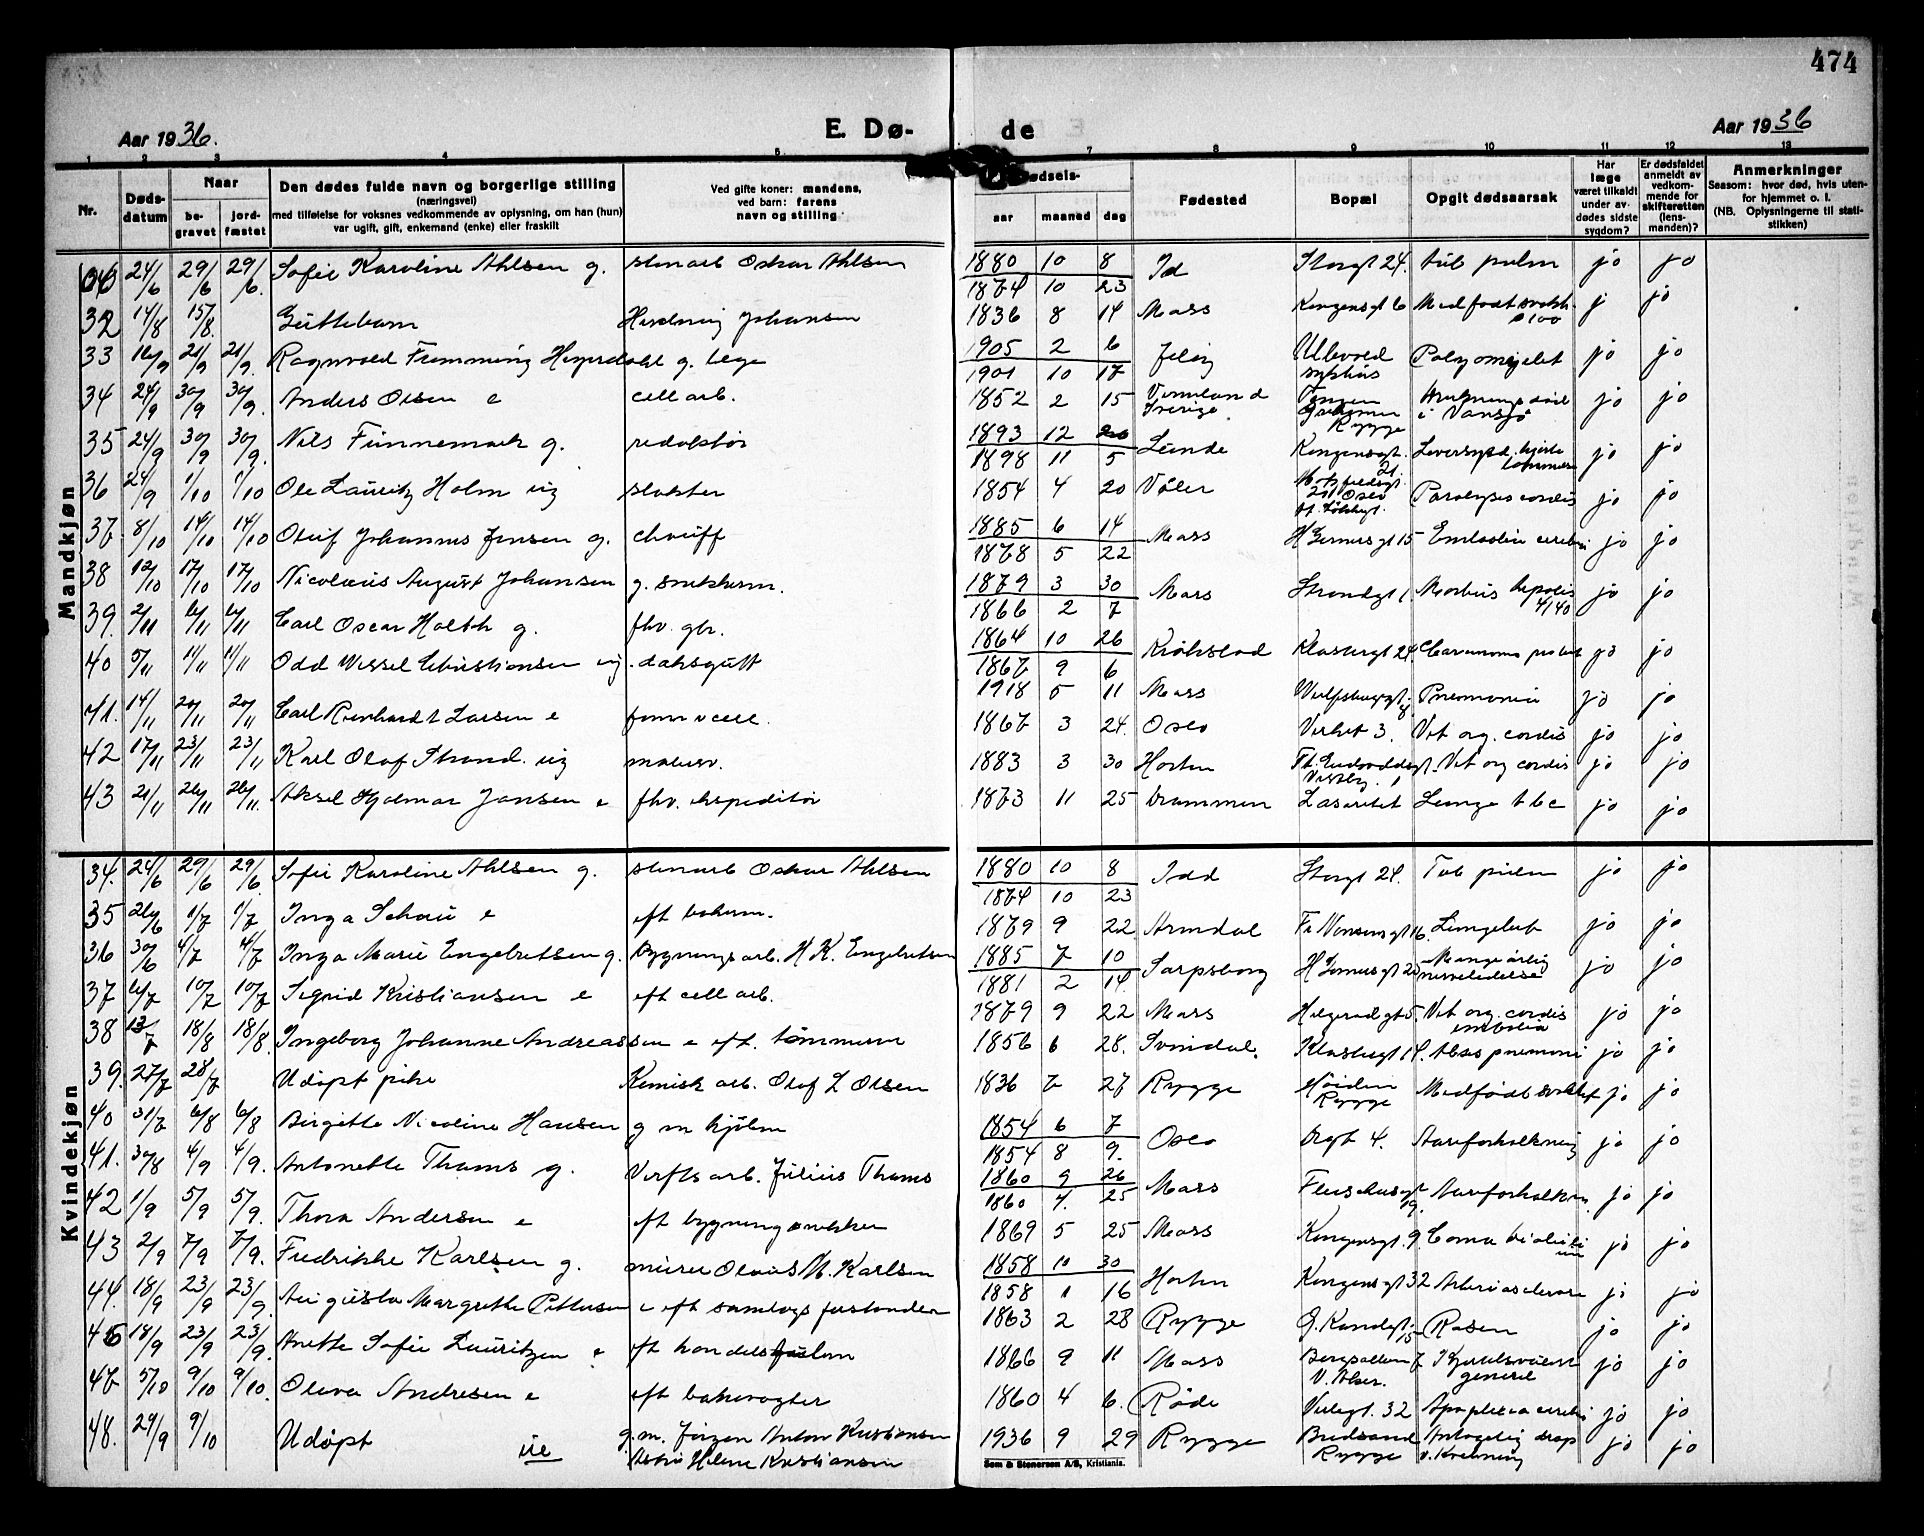 474
Aar 1936.
E. Dø-
de
Aar 1936
1 2 3 4 5 7 8 9 10 11 12 13
Nr.
Døds-
datum
Naar
be-
gravet
jord-
fæstet
Den dødes fulde navn og borgerlige stilling
(næringsvei)
med tilføielse for voksnes vedkommende av oplysning, om han (hun)
var ugift, gift, enkemand (enke) eller fraskilt
Ved gifte koner: mandens,
ved barn: farens
navn og stilling
aar
maaned
dag
Fødested
Bopæl
Opgit dødsaarsak
Har
læge
været tilkaldt
under av-
dødes sidste
sygdom?
Er dødsfaldet
anmeldt av
vedkom-
mende for
skifteretten
(lens-
manden)?
Anmerkninger
Seasom: hvor død, hvis uten-
for hjemmet o. l.
(NB. Oplysningerne til stati-
stikken)
Mandkjøn
24/6 29/6 29/6. Sofie Karoline Ahlsen g. stenarb Oskar Ahlsen 1880 10 8 Id Storgt 24. tub pulm jo jo
1874 10 23
32 14/8 15/8. Guttebarn Henning Johansen 1936 8 14 Moss Kongensgt 6 Medfødt svakh. j jo
33 16/9 21/9 21/9. Ragnvald Flemming Heyerdahl g. lege 1905 2 6 Jeløy Ullevold sykehus Polyomyelit jo jo
1901 10 17
34 24/9 30/9 30/9. Anders Olsen e cell arb. 1852 2 15 Vermland Sverige Rygge Druknings død i Vansjø jo jo
35 24/9 30/9 30/9. Nils Finnemark g. redaktør 1893 12 20 Lunde Kongensgt. 21. Leversykd. hjerte jo jo
1898 11 5
36 24/9 1/10 1/10 Ole Lauritz Holm ug slakter 1854 4 20 Våler Oslo Paralysis cordis jo jo
37. 8/10 14/10 14/10 Oluf Johannes Jensen g. chauff 1885 6 14 Moss H Gernersgt 15 Embolia cerebri jo jo
1878 5 22
38 12/10 17/10 17/10 Nicolaus August Johansen g. snekkerm. 1879 3 30 Moss Strandgt 1 Morbus hepatis jo jo
1866 2 7
39. 2/11 6/11 6/11 Carl Oscar Holth g. fhv. gbr. 1864 10 26 Kråkstad Klostergt 24. jo jo
1867 9 6
40 5/11 11/11 1/11 Odd Wessel Christiansen ug. dæksgutt 1918 5 11 Moss Wulfsbergsgt. 8 Pneumonia jo jo
41. 14/11 20/11 20/11 Carl Reinhardt Larsen e form v cell. 1867 3 24. Oslo Verket 3. Vit org. cordis jo jo
42 17/11 23/11 23/11 Karl Olaf Strand. ug malersv. 1883 3 30 Horten Vit org cordis jo jo
43 21/11 26/11 26/11. Aksel Hjalmar Jansen e fhv. ekspeditør 1873 11 25 Drammen Lasarettet Lunge tbc jo jo
Kvindekjøn
34. 24/6 29/6 29/6. Sofie Karoline Ahlsen g. stenarb Oskar Ahlsen 1880 10 8 Idd Storgt 24. Tub pulm jo jo
1874 10 23
35 26/6 1/7 1/7 Inga Schou e eft bokum. 1879 9 22 Arendal Fr Nansensgt 16. Lungetub jo jo
36 30/6 4/7 4/7 Inga Marie Engebretsen g. bygningsarb. H K. Engebretsen 1885 7 10 Sarpsborg H Gernersgt 20 Mangeårig nerveledelse jo jo
1881 2 14.
37 6/7 10/7 10/7 Sigrid Kristiansen e eft cell arb. 1879 9 22 Moss Helgerødgt 5. Vit org. cordis embolia jo jo
38 13/7 18/8 18/8. Ingeborg Johanne Andreassen e eft. tømmerm 1856 6 28. Svindal. Klostergt 14. pneumoni jo jo
39. 27/7 28/7 Udøpt pike Kemisk arb. Olaf L Olsen 1936 7 27 Rygge Høiden Rygge Medfødt svakhet jo jo
40 31/7 6/8 6/8 Birgitte Nicoline Hansen g m hjulm 1854 6 7 Oslo Brgt 4. Aareforkalkning jo jo
1854 8 9.
41. 30/8 4/9 4/9. Antonette Thams g. Verfts arb. Julius Thams 1860 9 26 Moss Fleischersgt 19. Aareforkalkn. jo jo
1860 7. 25
42 1/9 5/9 5/9. Thora Andersen e eft bygningsnekker 1869 5 25 Moss Kongensgt. 9 Coma jo jo
43 2/9 7/9 7/9. Fredrikke Karlsen g. murer Olavus M. Karlsen 1858 10 30 Horten Kongensgt 32 Arteriosclerose jo jo
1858 1 16
44. 18/9 23/9 23/9. Augusta Margrethe Pettersen e eft samlags forstander 1863 2 28 Rygge G. Kandsgt. 15 Rosen jo jo
45 18/9 23/9 23/9. Anette Sofie Lauritzen e eft handels 1866 9 11 Moss Bergsallem 7 V. Aker. generel jo jo
47 5/10 9/10 9/10. Olava Andresen e eft banevogter 1860 4 6. Råde Verlegt. 32 Apoplexia cerebri jo jo
48. 29/9 9/10 Udøpt ue g. m. Jørgen Anton Kristiansen 1936 9 29 Rygge Bredsand Rygge Antagelig drap v. Kvelning jo jo
Helene Kristiansen
Sem & Stenersen A/S, Kristiania.